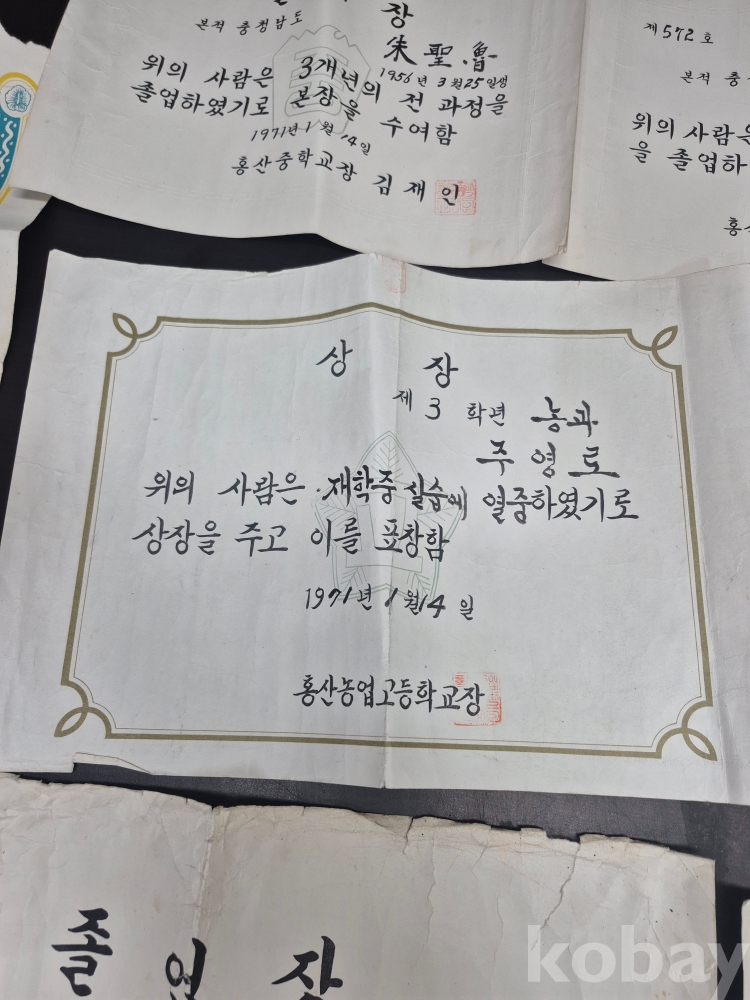 장
본적 충청남도
朱聖魯
1956년 3월25일생
위의 사람은 3개년의 전 과정을
졸업하였기로 본장을 수여함
1971년 1월 14일
홍산중학교장 김재인
제572호
본적 충
위의 사람은
을 졸업하
홍
상 장
제 3 학년 농과
주영로
위의 사람은 재학중 실습에 열중하였기로
상장을 주고 이를 표창함
1971년 1월 14일
홍산농업고등학교장
졸업장
kobay